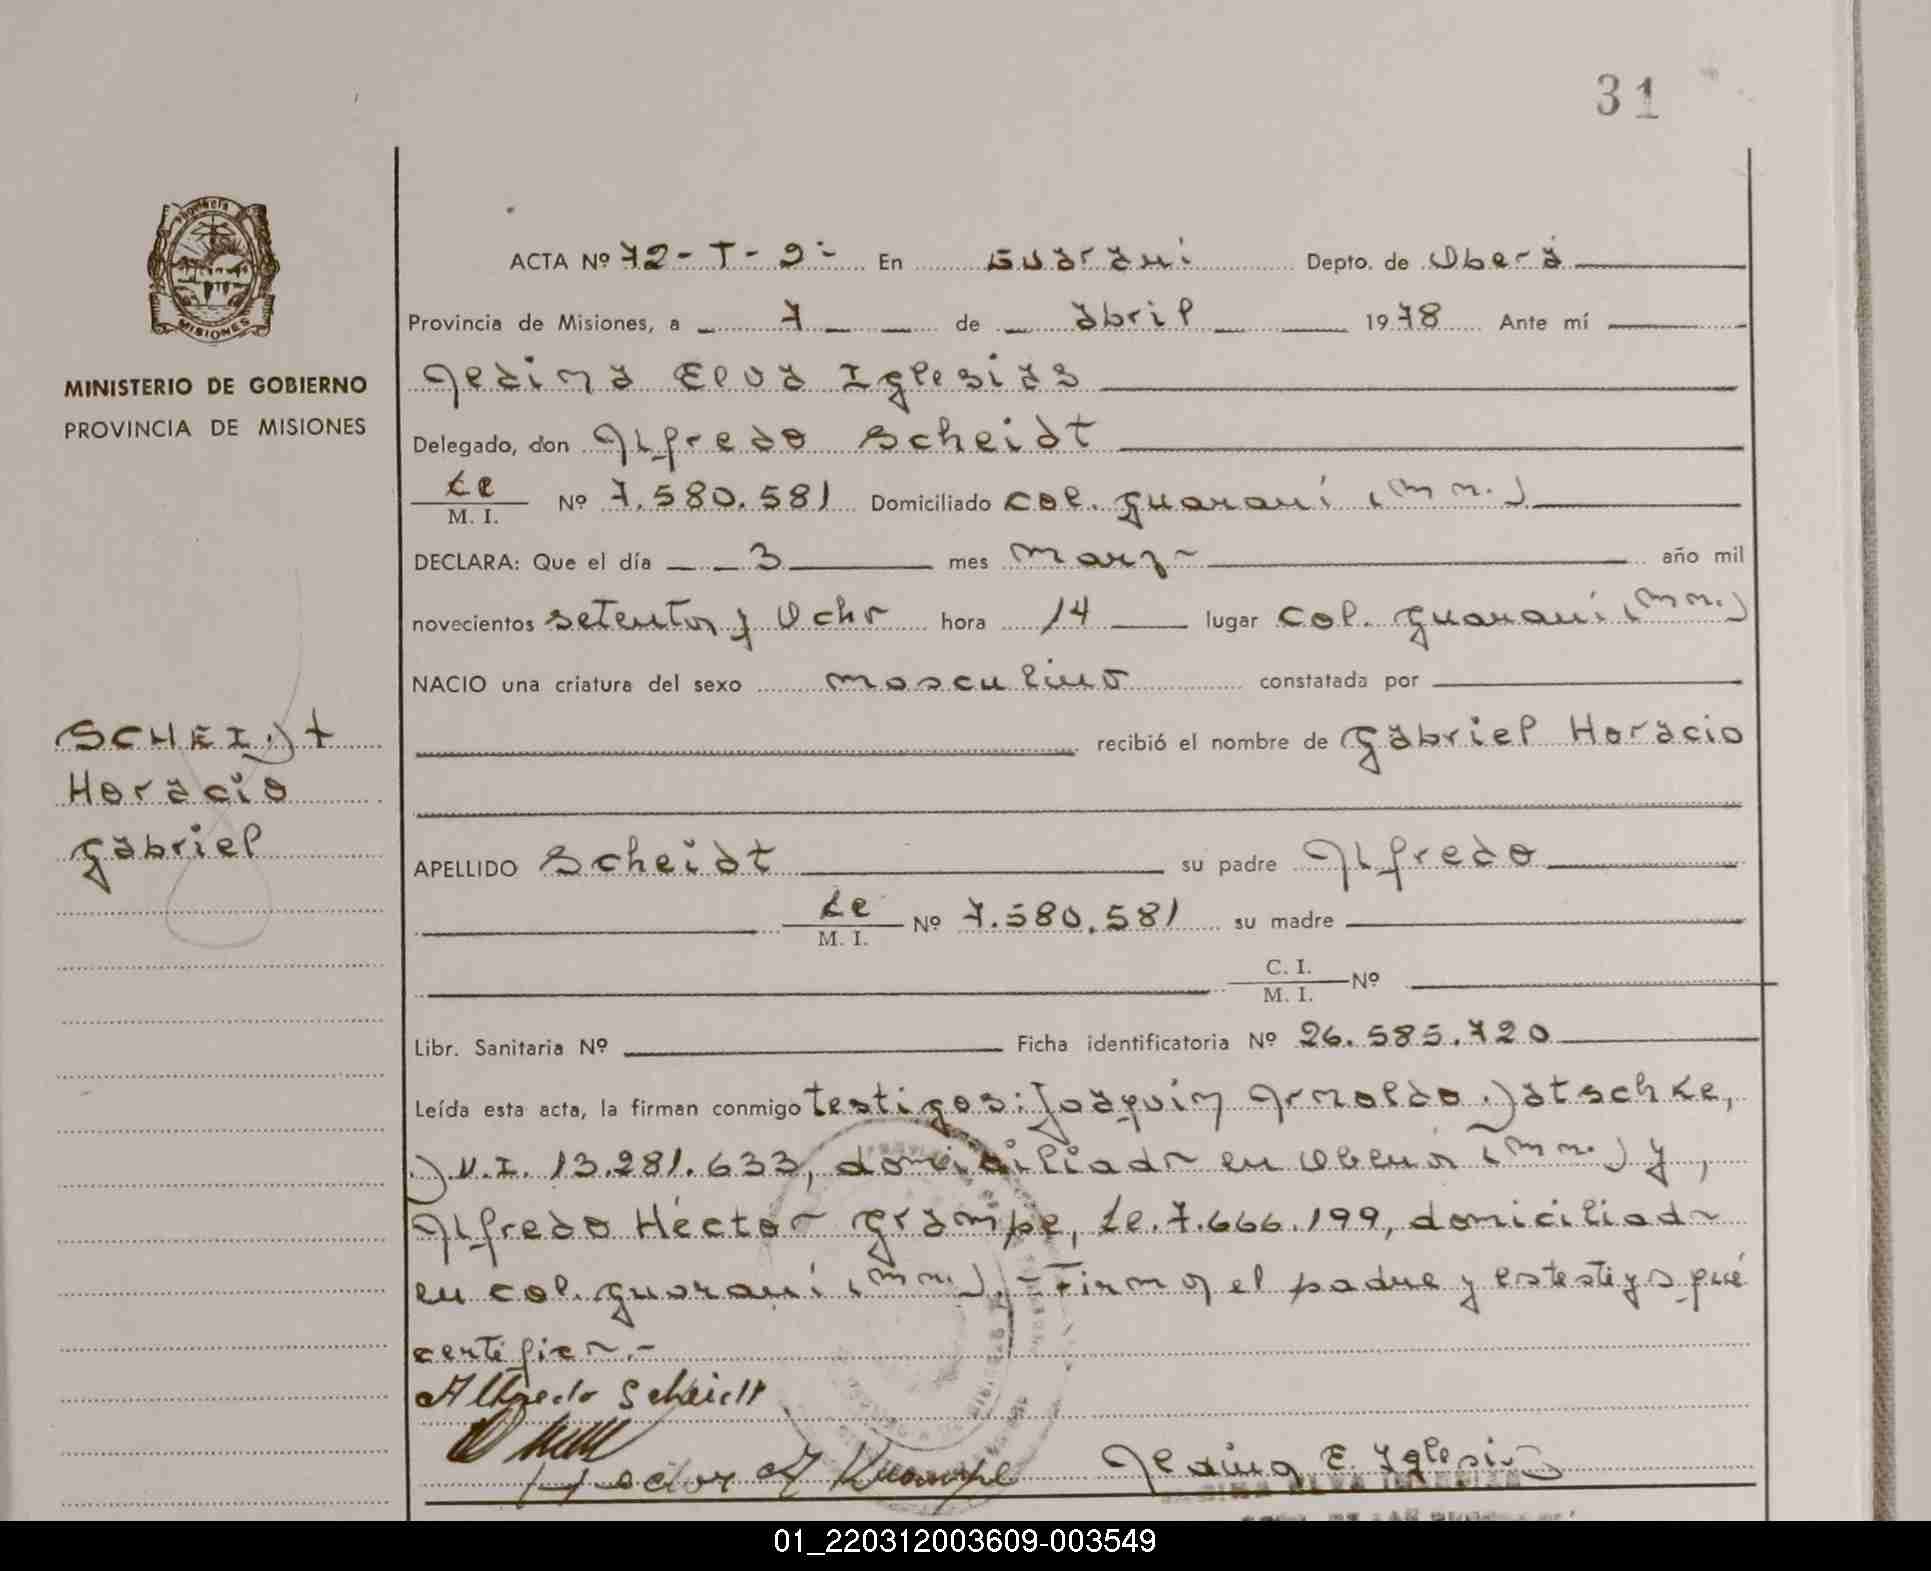 31
Provincia de
MISIONES
MINISTERIO DE GOBIERNO
PROVINCIA DE MISIONES
SCHEIDT
Horacio
Gabriel
ACTA Nº 72-T-2º- En Guaraní Depto. de Oberá
Provincia de Misiones, a 7 de abril 1978 Ante mí
Elva Iglesias
Delegado, don Alfredo Scheidt
Le M. I. Nº 7.580.581 Domiciliado col. guaraní (mn.)
DECLARA: Que el día 3 mes marzo año mil
novecientos setenta y Ocho hora 14 lugar col. guaraní (mn.)
NACIO una criatura del sexo masculino constatada por
recibió el nombre de Gabriel Horacio
APELLIDO Scheidt su padre Alfredo
Le M. I. Nº 7.580.581 su madre
C. I. M. I. Nº
Libr. Sanitaria Nº Ficha identificatoria Nº 26.585.720
Leída esta acta, la firman conmigo testigos: Joaquín Arnoldo Datschke,
D.N.I. 13.281.633, domiciliado en Oberá (mn.) y,
Alfredo Héctor Grampe, Le. 7.666.199, domiciliado
en col. guaraní (mn.).- Firma el padre y testigos que
certifican.-
Alfredo Scheidt
E. Iglesias
01_220312003609-003549